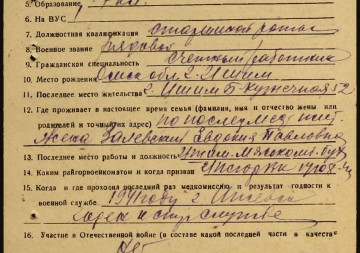 5. Образование
6. На ВУС
7. Должностная квалификация старшина роты
8. Военное звание рядовой
9. Гражданская специальность счетный работник
10. Место рождения Омская обл. г. Ишим
11. Последнее место жительства г. Ишим Б-Кузнечная 52
12. Где проживает в настоящее время семья (фамилия, имя и отчество жены или
родителей и точный их адрес) по последнему
жена Залевская Евдокия Павловна
13. Последнее место работы и должность Ишим.
14. Каким райгорвоенкоматом и когда призван
15. Когда и где проходил последний раз медкомиссию и результат годности к
военной службе 1941 году г. Ишим
годен
16. Участие в Отечественной войне (в составе какой последней части и в качестве
Нет